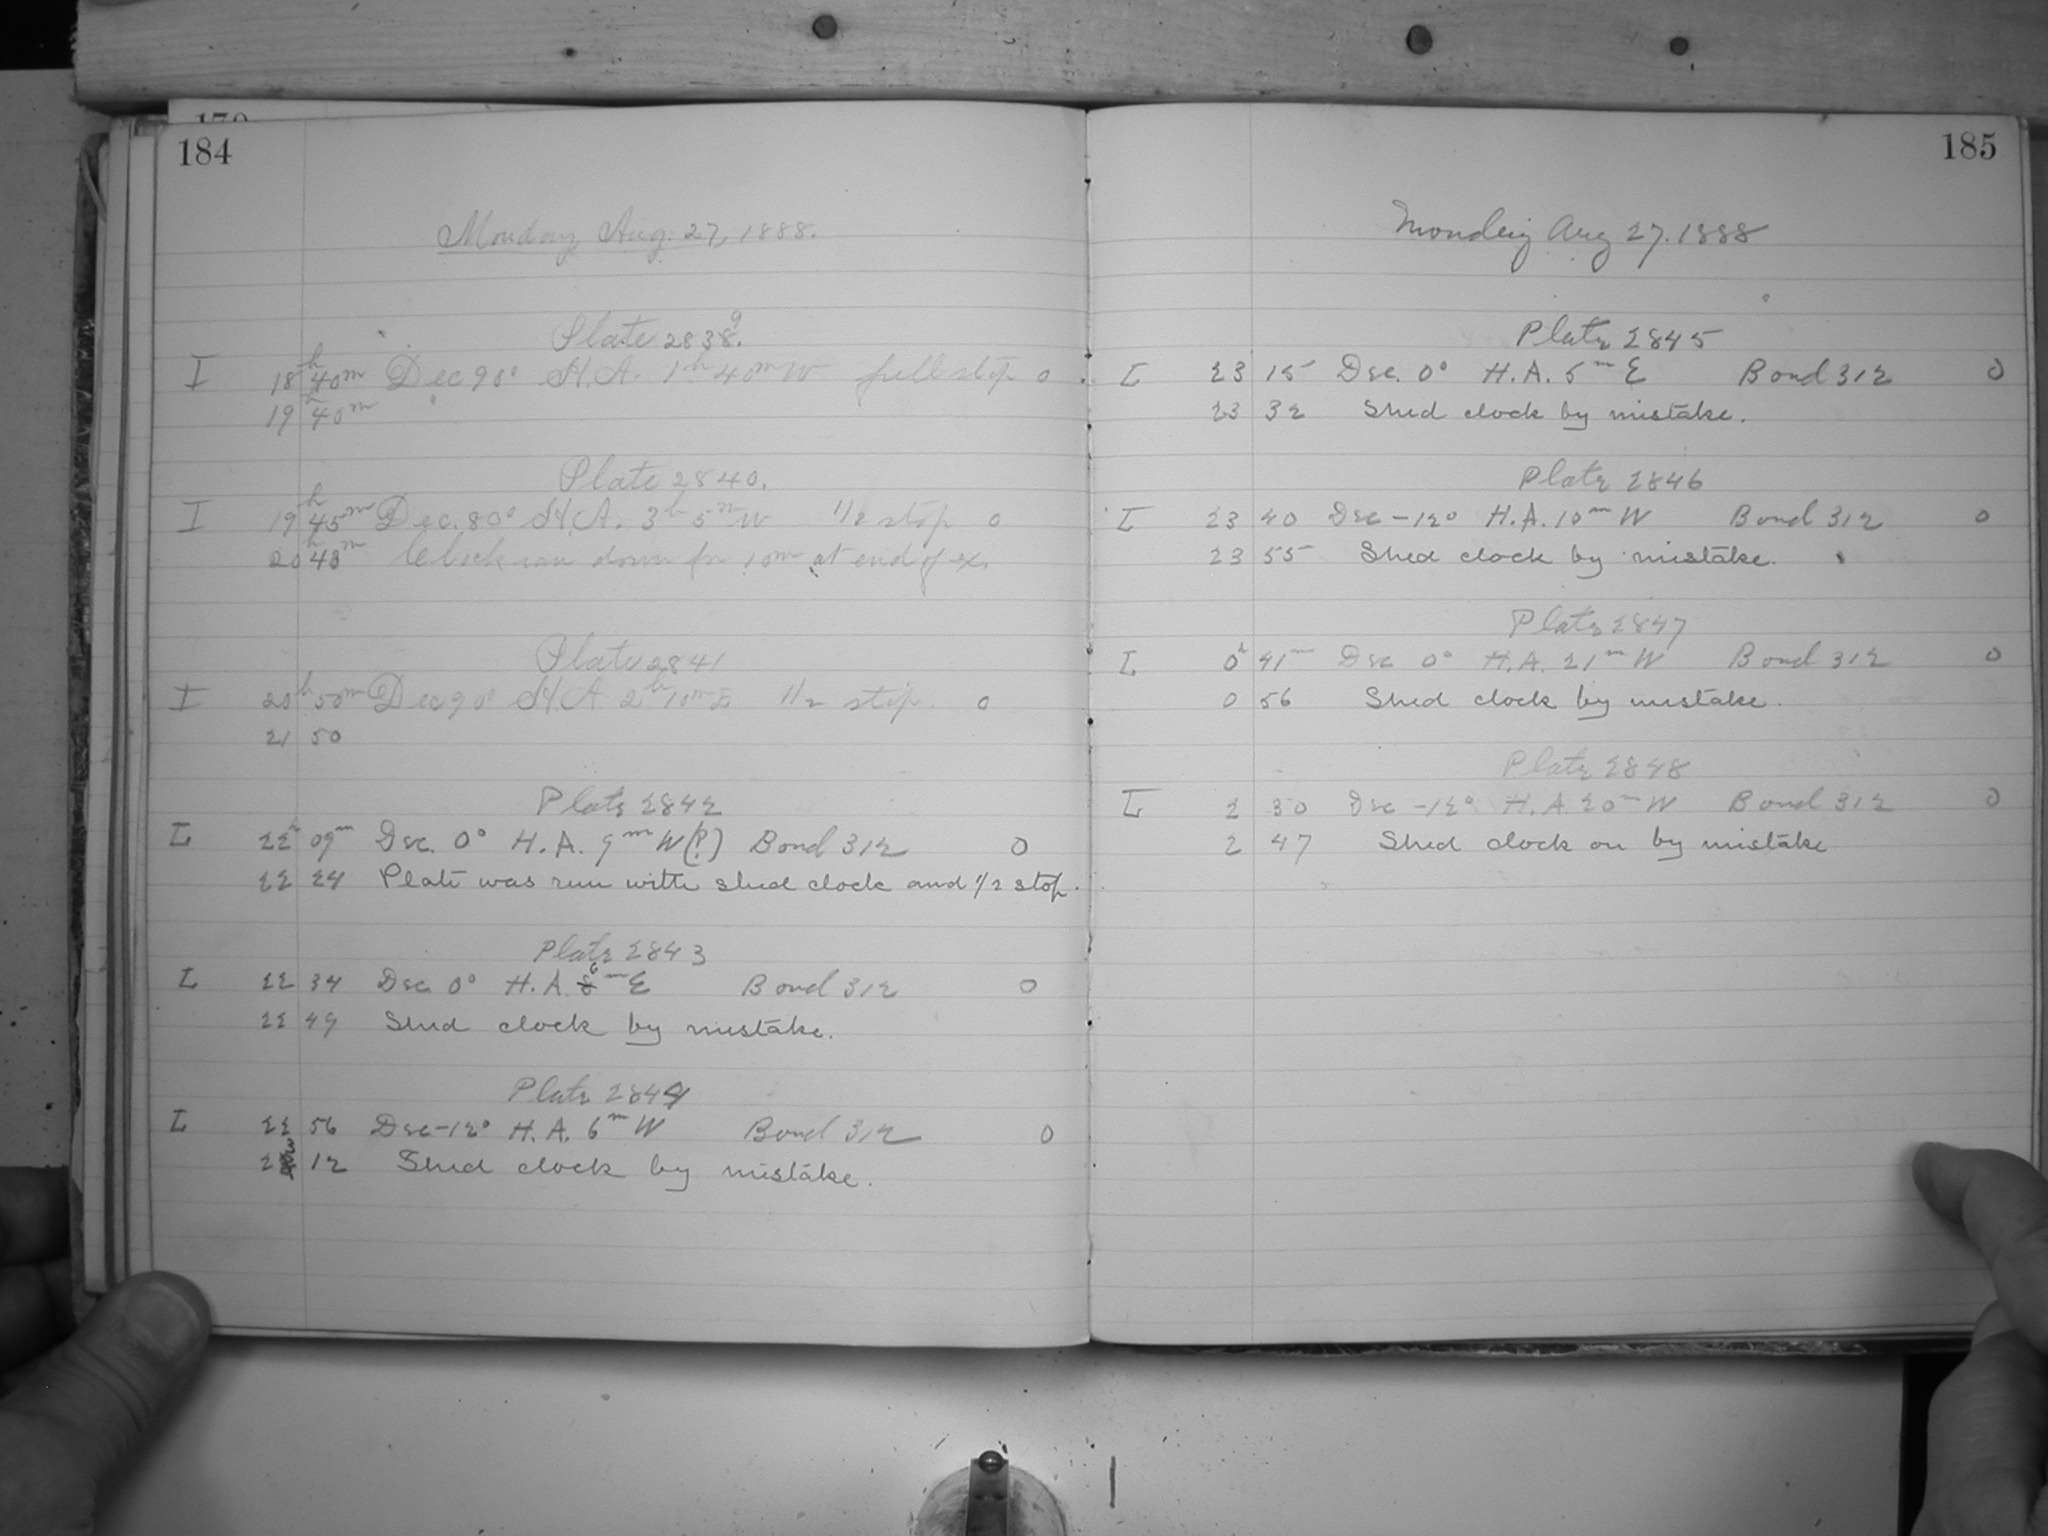 184
Monday Aug. 27, 1888.
Plate 2839.
I 18h 40m Dec 90° H.A. 1h 40m W full stop 0
19h 40m
Plate 2840.
I 19h 45m Dec. 80° H.A. 3h 5m W 1/2 stop 0
20h 48m Clock ran down for 10m at end of ex.
Plate 2841
I 20h 50m Dec 90° H.A 2h 10m E 1/2 stop. 0
21 50
Plate 2842
I 22h 09m Dec. 0° H.A. 9m W(?) Bond 312 0
22 24 Plate was run with shed clock and 1/2 stop.
Plate 2843
I 22 34 Dec. 0° H.A. 6m E Bond 312 0
22 49 Shed clock by mistake.
Plate 2844
I 22 56 Dec -12° H.A. 6m W Bond 312 0
12 Shed clock by mistake.
185
Monday Aug 27. 1888
Plate 2845
I 23 15 Dec. 0° H.A. 5m E Bond 312 0
23 32 Shed clock by mistake.
Plate 2846
I 23 40 Dec -12° H.A. 10m W Bond 312 0
23 55 Shed clock by mistake.
Plate 2847
I 0h 41m Dec 0° H.A. 21m W Bond 312 0
0 56 Shed clock by mistake.
Plate 2848
I 2 30 Dec -12° H.A. 20m W Bond 312 0
2 47 Shed clock on by mistake